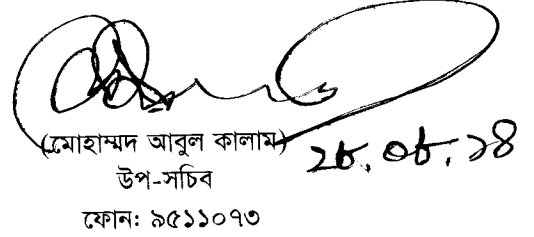 (মোহাম্মদ আবুল কালাম) ২৮.০৮.১৪
উপ-সচিব
ফোন: ৯৫১১০৭৩